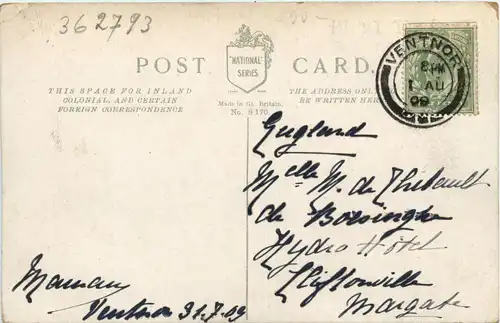 362793
POST CARD.
"NATIONAL"
SERIES
Made in Gt. Britain.
No. S 170
THIS SPACE FOR INLAND
COLONIAL, AND CERTAIN
FOREIGN CORRESPONDENCE
THE ADDRESS ONLY
BE WRITTEN HER
VENTNOR
1 AU
09
England
Melle M. de Thibault
de Boesinghe
Hydro Hôtel
Cliftonville
Margate
Maman
Ventnor 31.7.09